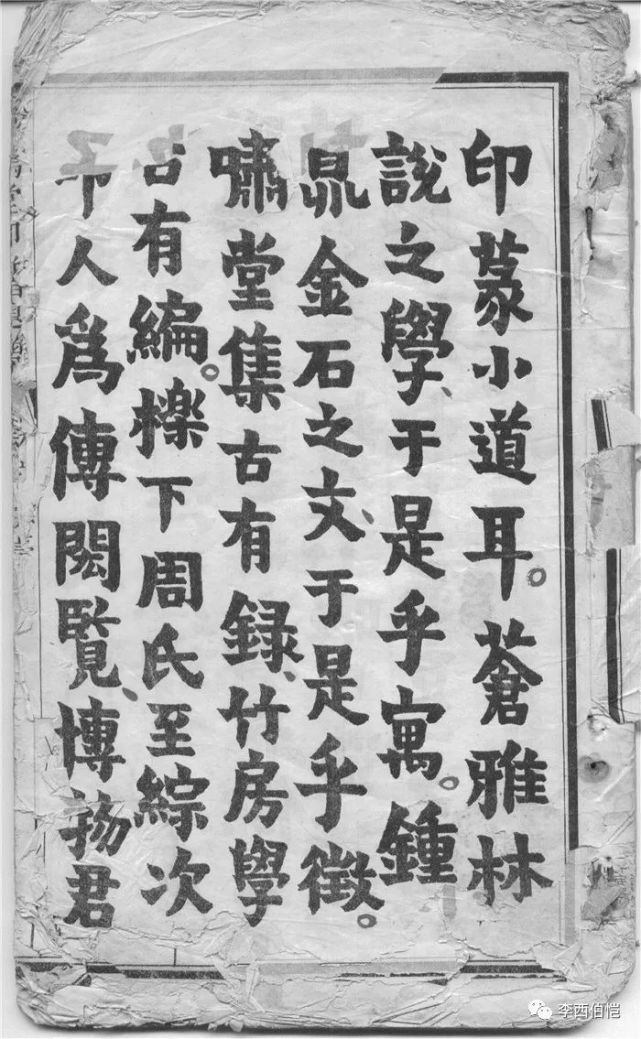 印篆小道耳。蒼雅林
說之學、于是乎寓。鍾
鼎金石之文、于是乎徵。
嘯堂集古有録、竹房學
古有編。櫟下周氏至綜次
印人爲傳閎覽、博物君
李西伯恺